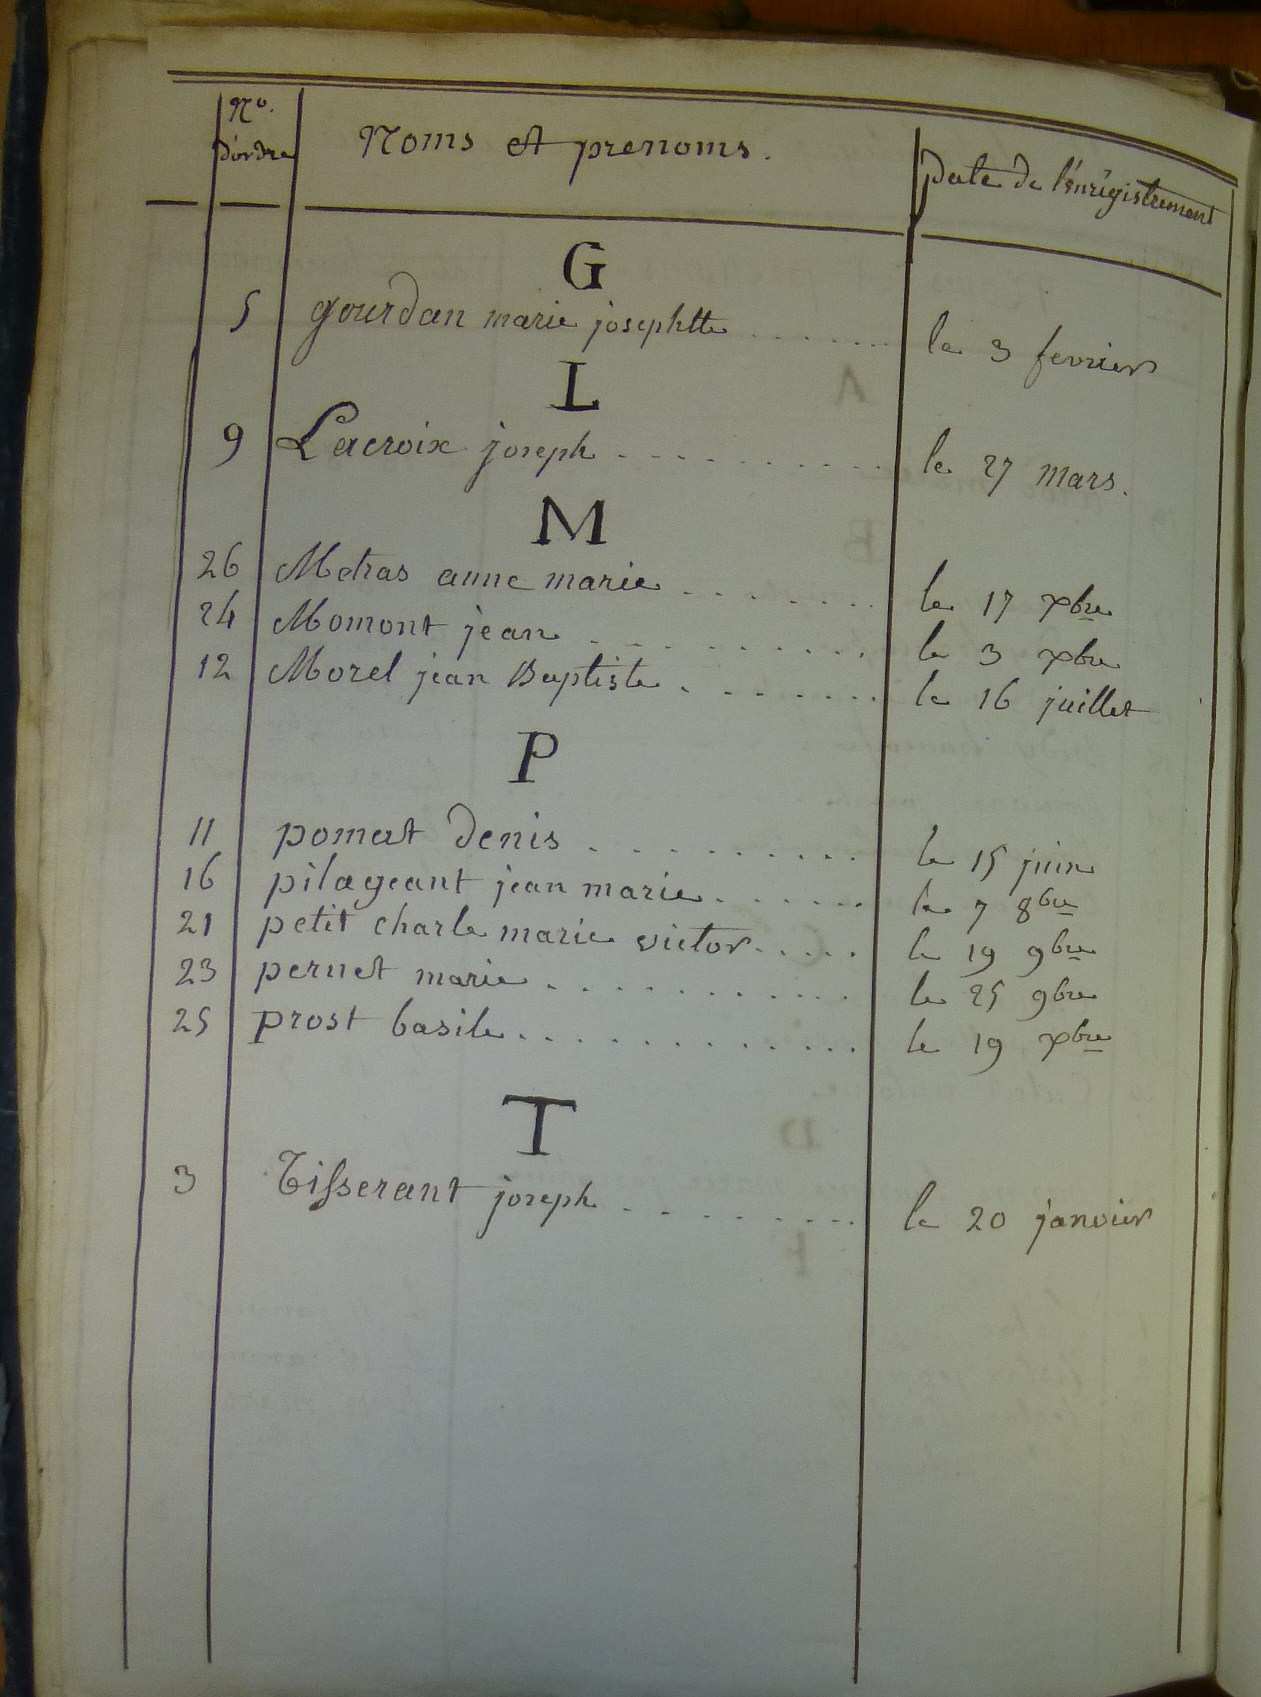 No. d'ordre Noms et prenoms. Date de l'enrégistrement
G
5 gourdan marie josephtte ....... le 3 fevrier
L
9 Lacroix joseph .......... le 27 mars.
M
26 Metras anne marie ....... le 17 xbre
24 Momont jean .......... le 3 xbre
12 Morel jean Baptiste ........ le 16 juillet
P
11 pomat denis .......... le 15 juin
16 pilageant jean marie ...... le 7 8bre
21 petit charle marie victor ..... le 19 9bre
23 pernet marie ........... le 25 9bre
25 prost basile ............. le 19 xbre
T
3 Tisserant joseph ......... le 20 janvier